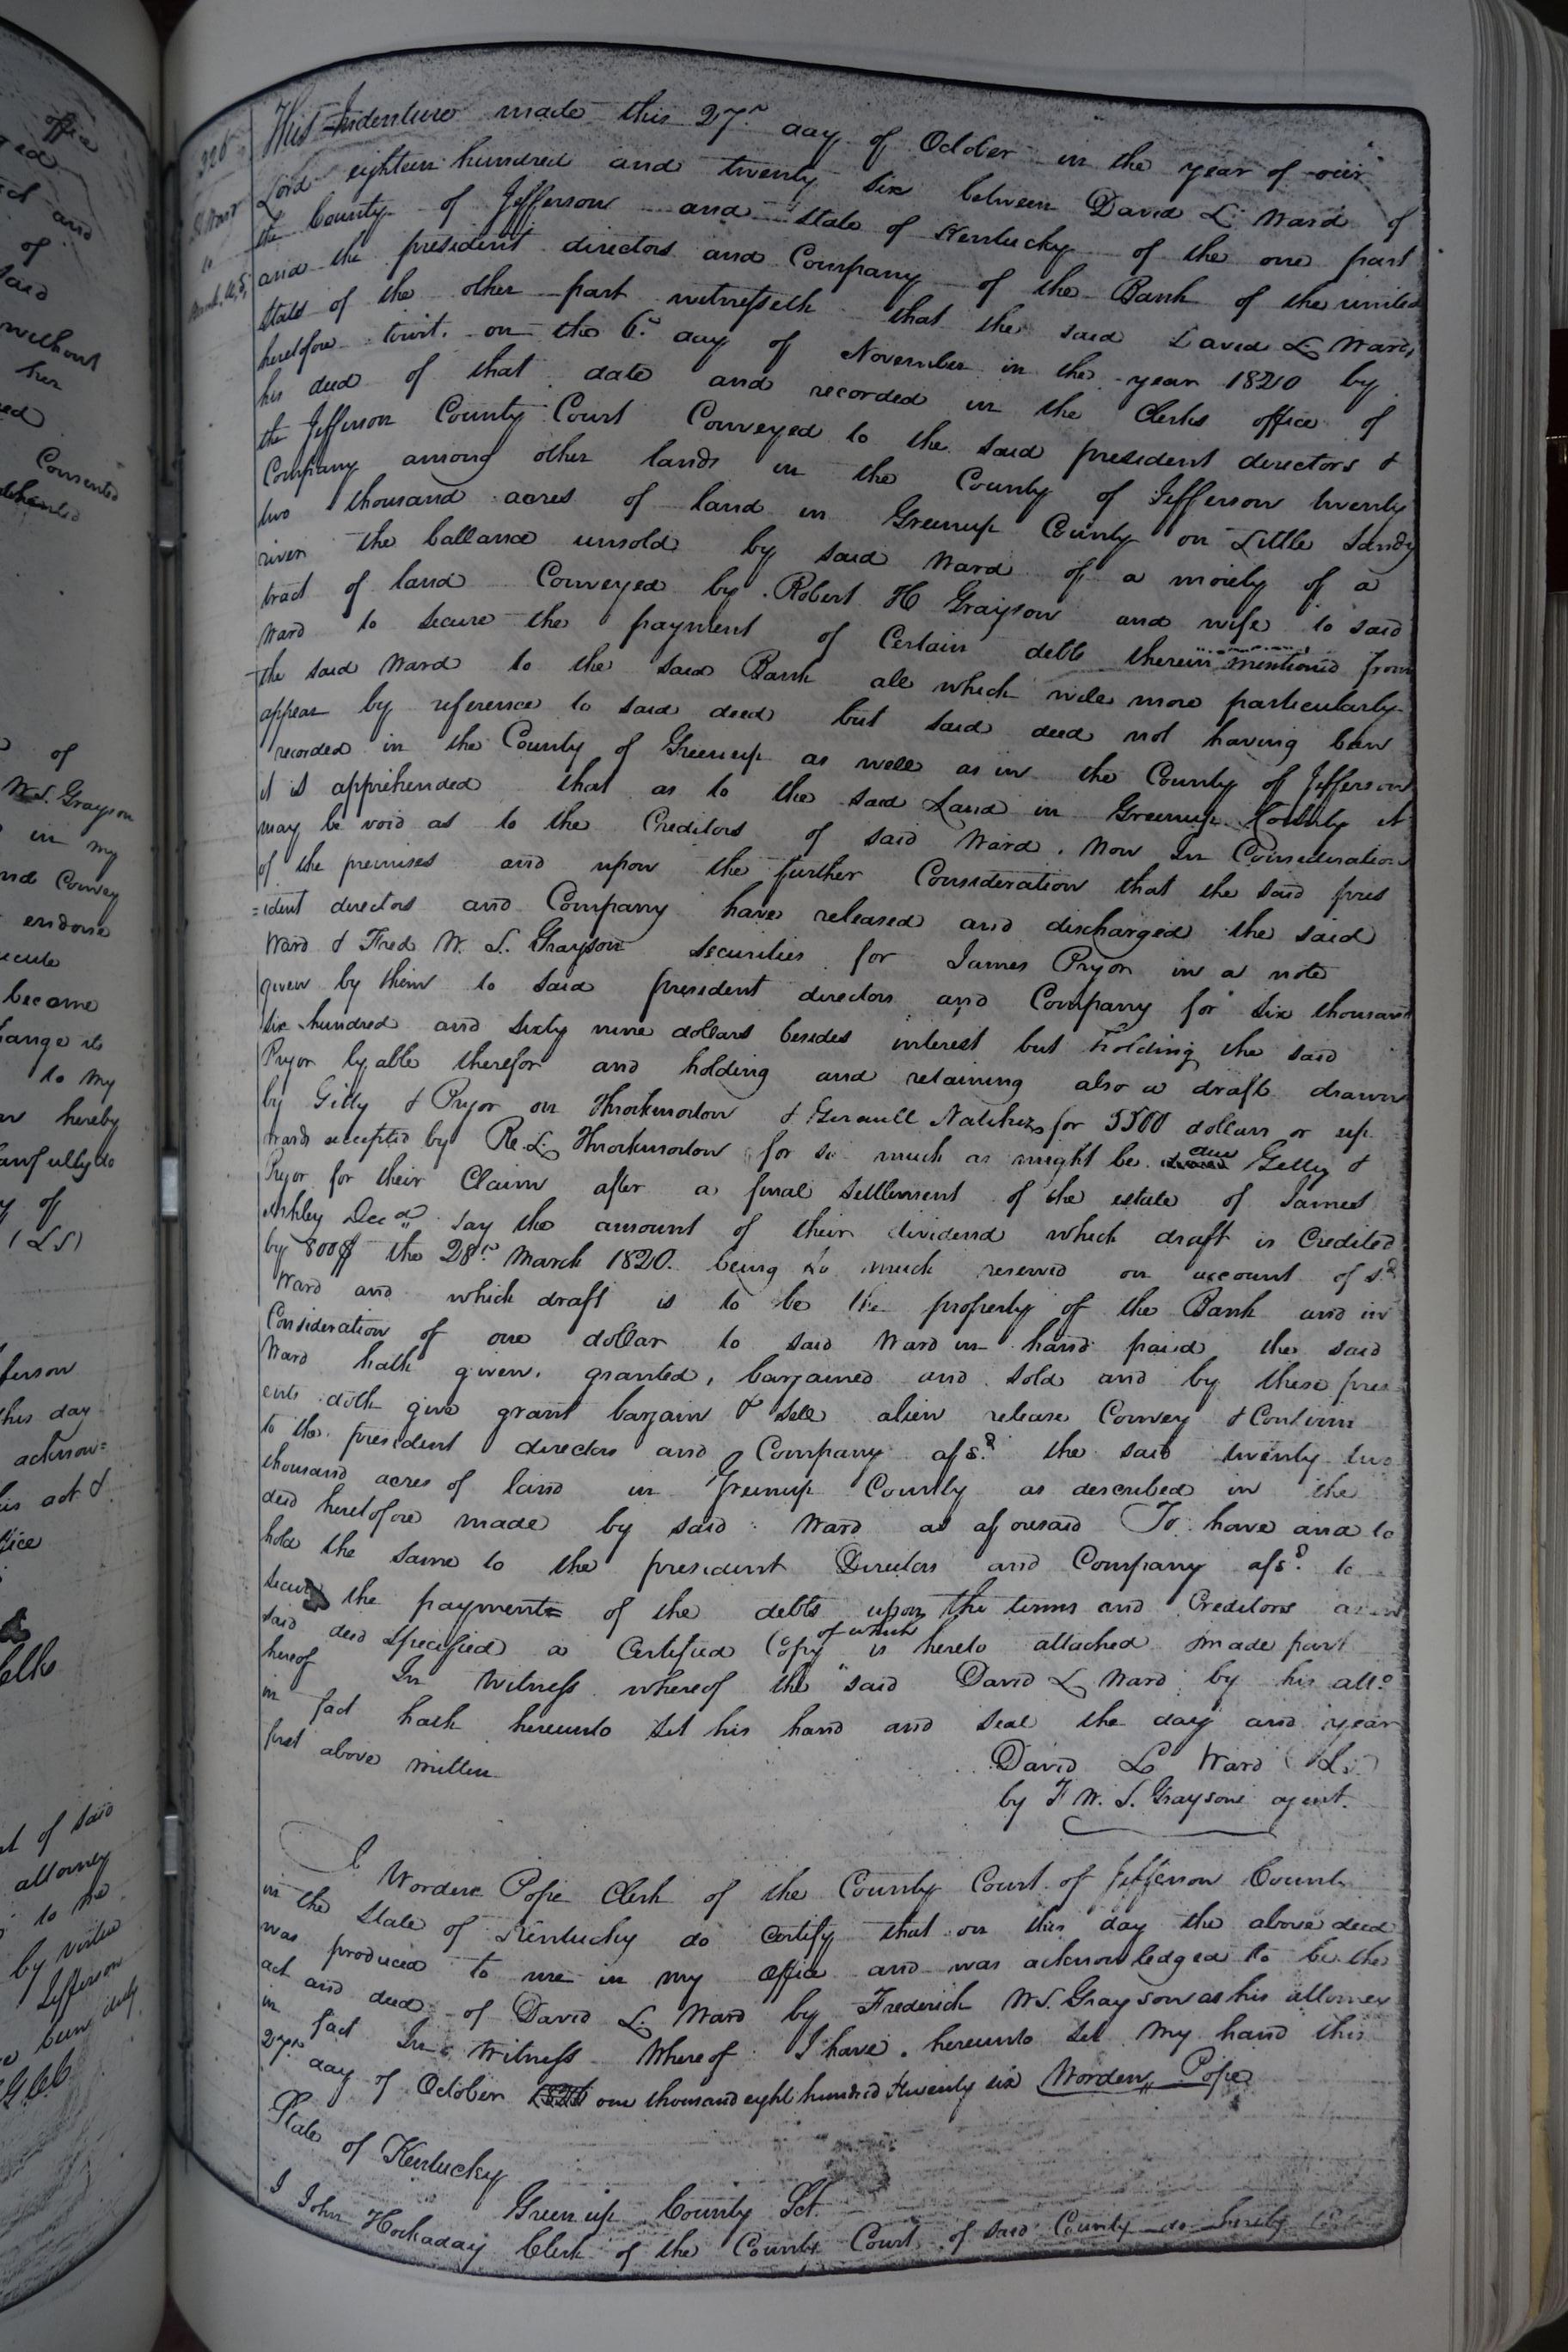 offic
ed
ed and
of
said
without
her
ed
Consented
of
W.S. Grayson
in my
and Convey
endorse
ecute
become
ange its
to my
hereby
lawfully do
of
(LS)
ferson
this day
acknow=
his act &
fice
elks
of said
attorney
to me
by virtue
Jefferson
been duly
326
D L Ward
to
Bank U,S,
This Indenture made this 27th day of October in the year of our
Lord eighteen hundred and twenty six between David L. Ward of
the County of Jefferson and state of Kentucky of the one part
and the president directors and Company of the Bank of the united
states of the other part witnesseth that the said David L Ward,
heretofore towit. on the 6th day of November in the year 1820 by
his deed of that date and recorded in the Clerks office of
the Jefferson County Court Conveyed to the said president directors &
Company among other lands in the County of Jefferson twenty
two thousand acres of land in Greenup County on Little Sandy
river the ballance unsold by said Ward of a moiety of a
tract of land Conveyed by Robert H Grayson and wife to said
Ward to secure the payment of Certain debts therein mentioned from
the said Ward to the said Bank all which will more particularly
appear by reference to said deed but said deed not having been
recorded in the County of Greenup as well as in the County of Jefferson
it is apprehended that as to the said Land in Greenup County it
may be void as to the Creditors of said Ward. Now In Consideration
of the premises and upon the further Consideration that the said pres
=ident directors and Company have released and discharged the said
Ward & Fred W. S. Grayson securities for James Pryor in a note
given by them to said president directors and Company for six thousand
six hundred and sixty nine dollars besides interest but holding the said
Pryor lyable therefor and holding and retaining also a draft drawn
by Gilly & Pryor on Throckmorton & Girault Natchez for 5500 dollars or up
wards accepted by Ro. L. Throckmorton for so much as might be due Gelly &
Pryor for their Claim after a final settlement of the estate of James
Ashley Decd. say the amount of their dividend which draft is Credited
by 800$ the 28th March 1820. being so much reserved on account of sd
Ward and which draft is to be the property of the Bank and in
Consideration of one dollar to said Ward in hand paid the said
Ward hath given, granted, bargained and sold and by these pres
ents doth give grant bargain & sell alien release Convey & Confirm
to the president directors and Company afsd. the said twenty two
thousand acres of land in Greenup County as described in the
deed heretofore made by said Ward as aforesaid To have and to
hold the same to the president Directors and Company afsd. to
secure the payment= of the debts upon the terms and Creditors as in
said deed specified a Certified Copy of which is hereto attached made part
hereof In Witness whereof the said David L Ward by his atto
in fact hath hereunto set his hand and seal the day and year
first above written
David L Ward (LS)
by F W. S. Grayson agent.
I Worden Pope Clerk of the County Court of Jefferson County
in the State of Kentucky do certify that on this day the above deed
was produced to me in my office and was acknowledged to be the
act and deed of David L. Ward by Frederick W.S. Grayson as his attorney
in fact In Witness Whereof I have hereunto set my hand this
27th day of October 1826 one thousand eight hundred & twenty six Worden Pope
State of Kentucky
Greenup County Sct.
I John Hockaday Clerk of the County Court of said County do hereby